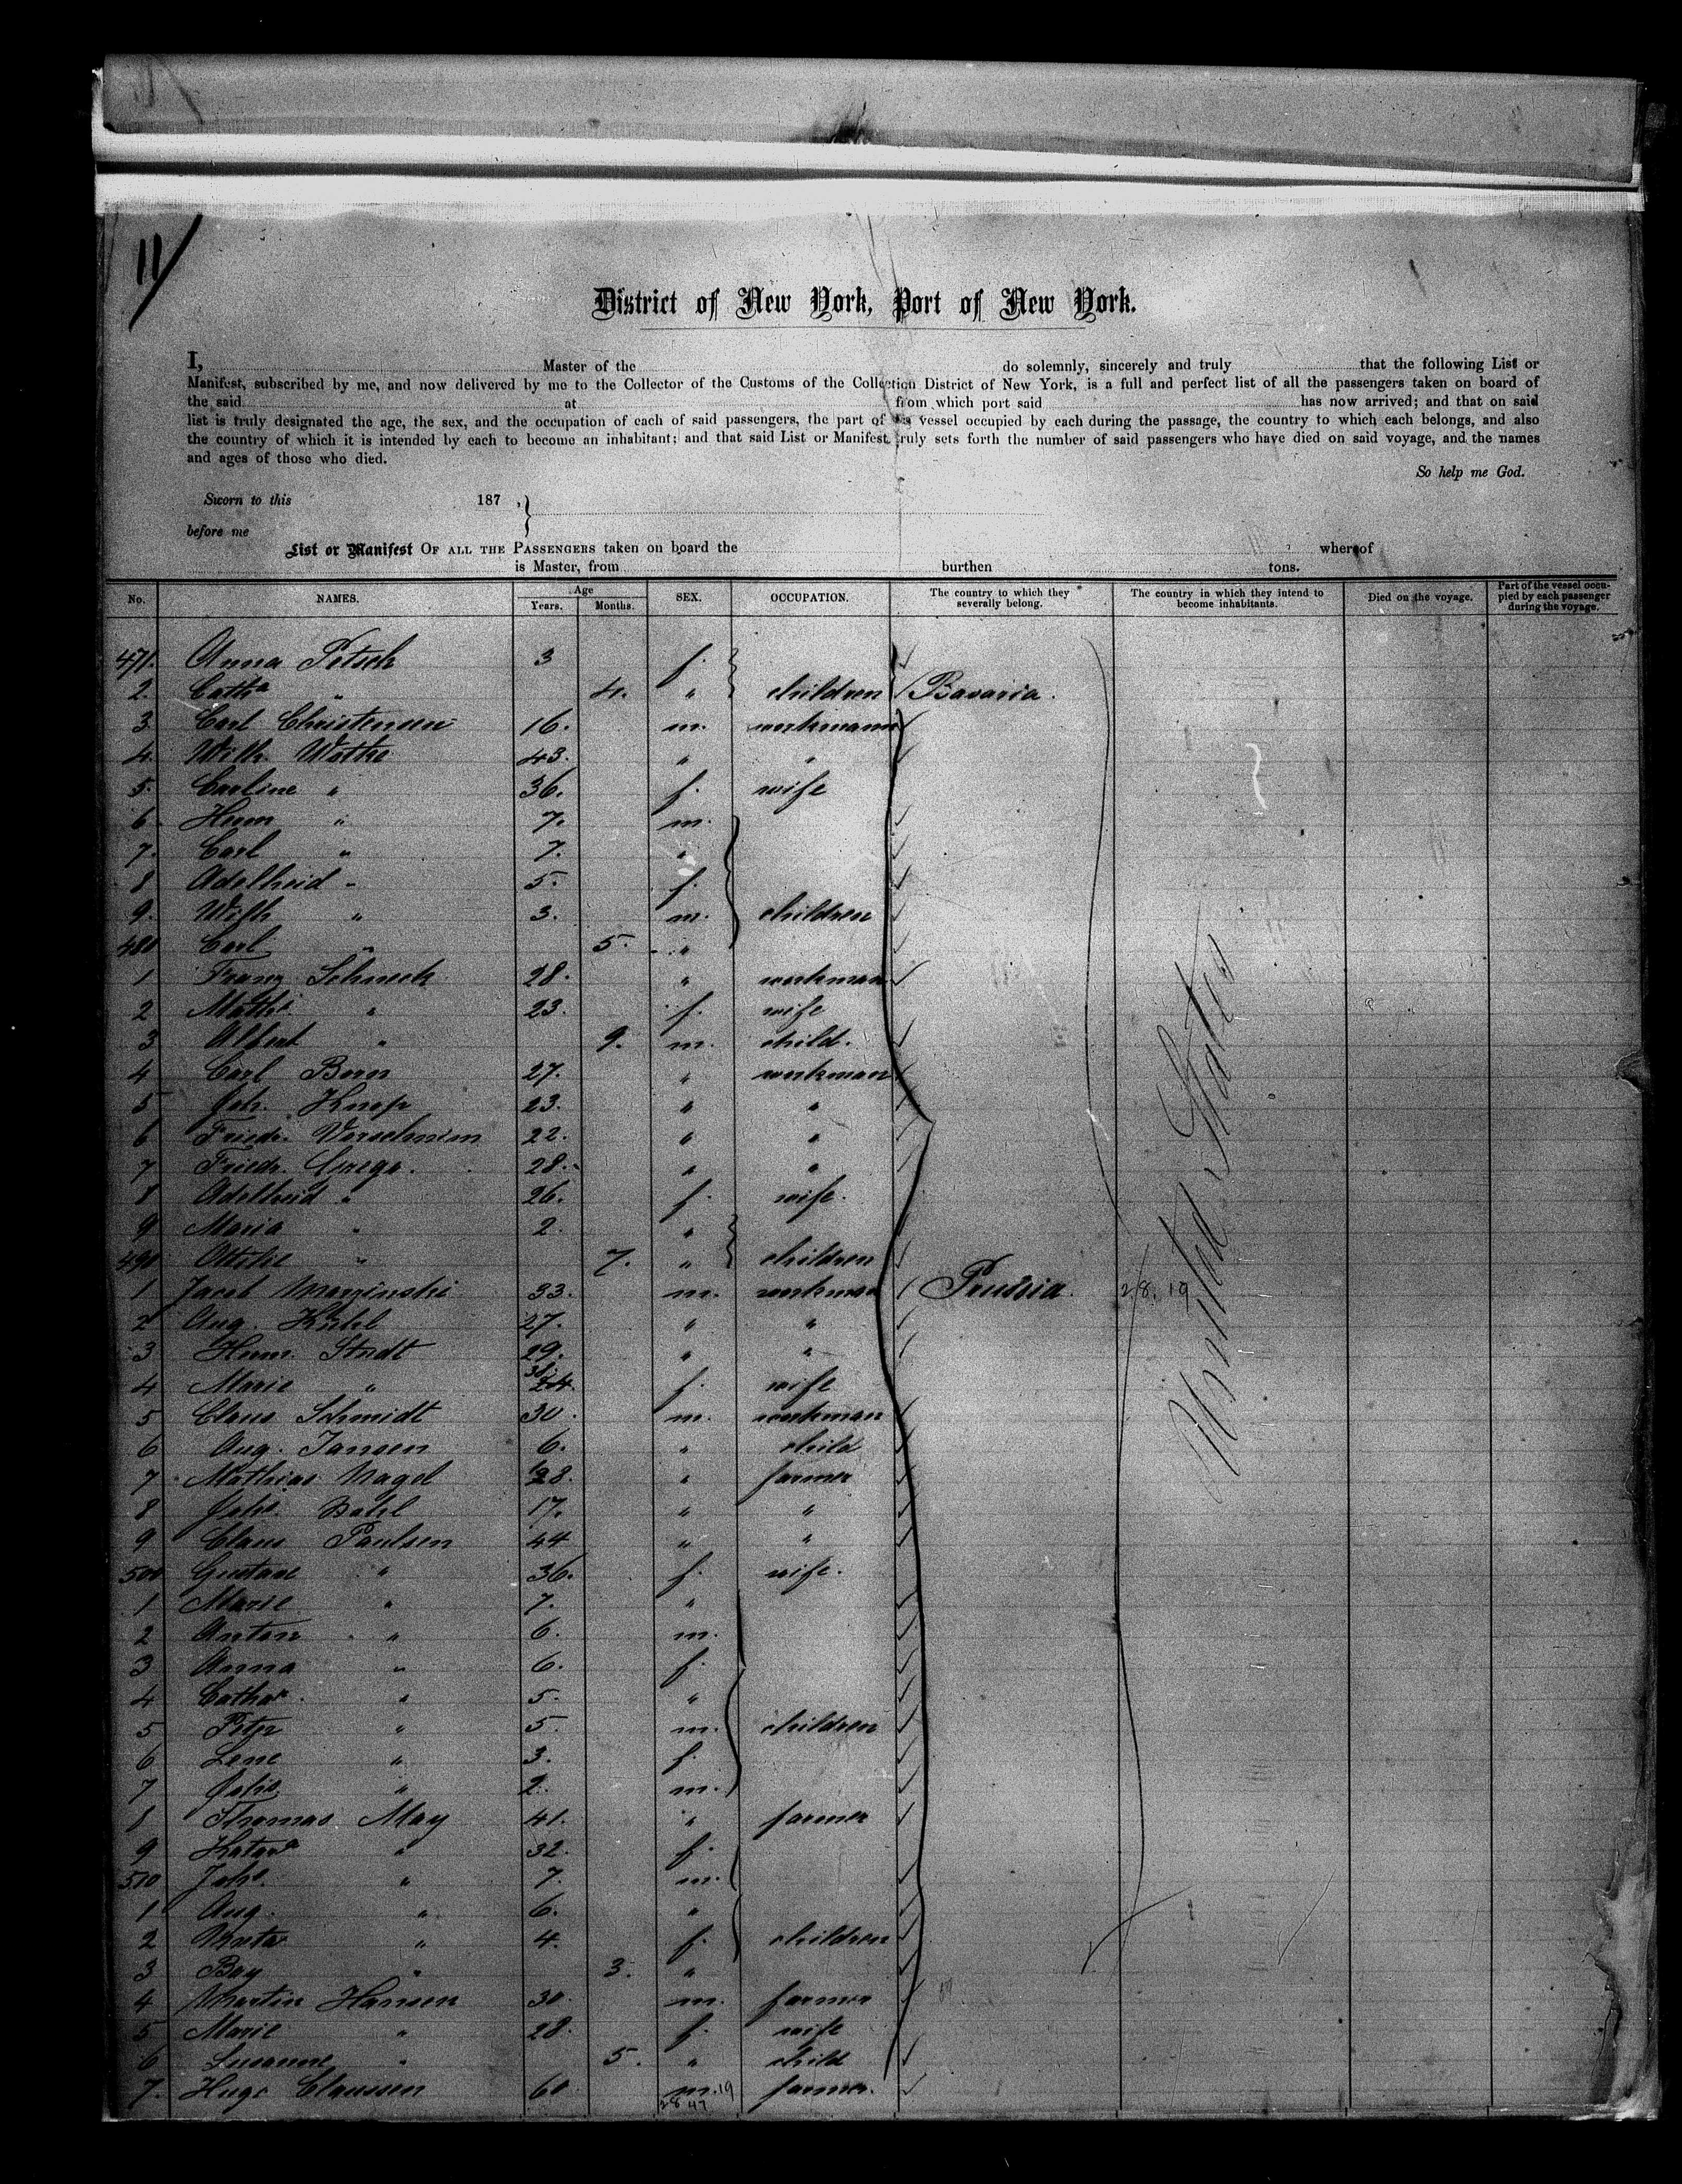 11/
District of New York, Port of New York.
I, Master of the do solemnly, sincerely and truly that the following List or
Manifest, subscribed by me, and now delivered by me to the Collector of the Customs of the Collection District of New York, is a full and perfect list of all the passengers taken on board of
the said at from which port said has now arrived; and that on said
list is truly designated the age, the sex, and the occupation of each of said passengers, the part of the vessel occupied by each during the passage, the country to which each belongs, and also
the country of which it is intended by each to become an inhabitant; and that said List or Manifest truly sets forth the number of said passengers who have died on said voyage, and the names
and ages of those who died.
So help me God.
Sworn to this 187 ,
before me
List or Manifest OF ALL THE PASSENGERS taken on board the whereof
is Master, from burthen tons.
No. NAMES. Age Years. Months. SEX. OCCUPATION. The country to which they severally belong. The country in which they intend to become inhabitants. Died on the voyage. Part of the vessel occupied by each passenger during the voyage.
471. Anna Petsch 3 f.
2. Catha " 4. " children Bavaria.
3 Carl Christensen 16. m. workmann
4. Wilh. Wothe 43. " "
5. Carline " 36. f. wife
6. Herm " 7. m.
7. Carl " 7. "
8 Adelheid " 5. f.
9. Wilh " 3. m. children
480 Carl " 5. "
1 Franz Schneck 28. " workman
2 " 23. f. wife
3 Albert " 9. m. child.
4 Carl Born 27. " workman
5 Joh. Knop 23. " "
6 Friedr. 22. " "
7 Friedr. 28. " "
8 Adelheid " 26. f. wife.
9 Maria " 2. "
490 Ottilie " 7. " children
1 Jacob 33. m. workman Prussia. 28. 19
2 Aug. 27. " "
3 Herm. Stradt 29. " "
4 Marie " 24. f. wife
5 Claus Schmidt 30. m. workman
6 Aug. Jansen 6. " child
7 Mathias Nagel 28. " farmer
8 Johs. Dahl 17. " "
9 Claus Paulsen 44 " "
500 Gustave " 36. f. wife.
1 Marie " 7. "
2 Anton " 6. m.
3 Anna " 6. f.
4 Cathar. " 5. "
5 Peter " 5. m. children
6 Lene " 3. f.
7 Johs " 2. m.
8 Thomas May 41. " farmer
9 " 32. f.
510 Johs. " 7. m.
1 Aug. " 6. "
2 Meta " 4. f. children
3 Bay " 3. "
4 Martin Hansen 30. m. farmer
5 Marie " 28. f. wife
6 Susanne " 5. " child
7. Hugo Claussen 60 m. farmer.
19
28 47
United States